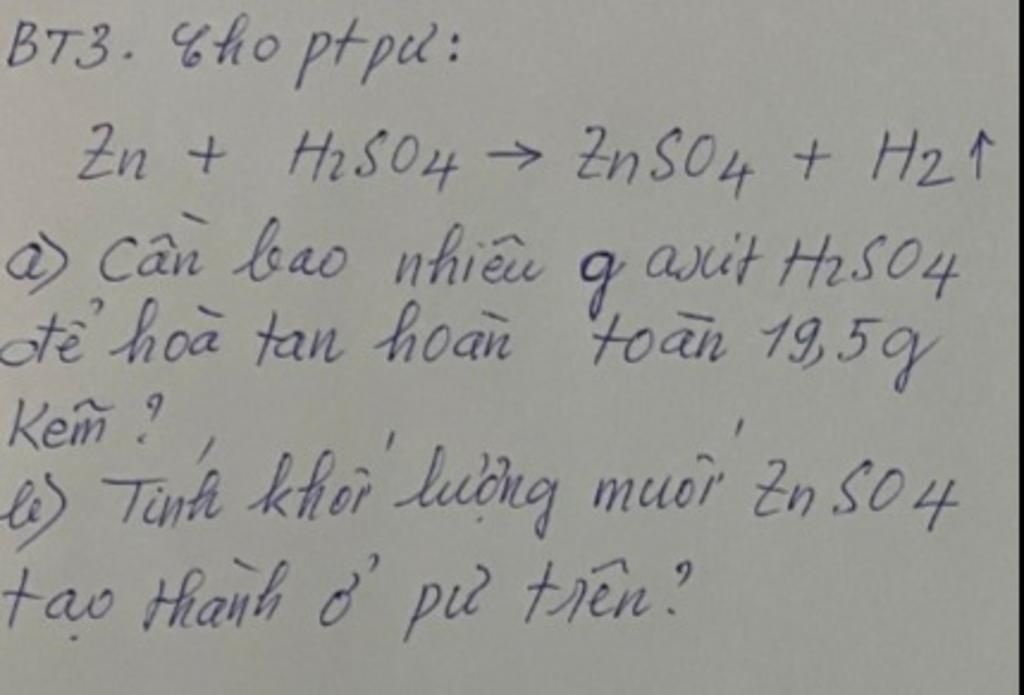 BT3. Cho ptpư:
Zn + H2SO4 → ZnSO4 + H2↑
a) Cần bao nhiêu g axit H2SO4
để hoà tan hoàn toàn 19,5g
Kẽm?
b) Tính khối lượng muối ZnSO4
tạo thành ở pư trên?